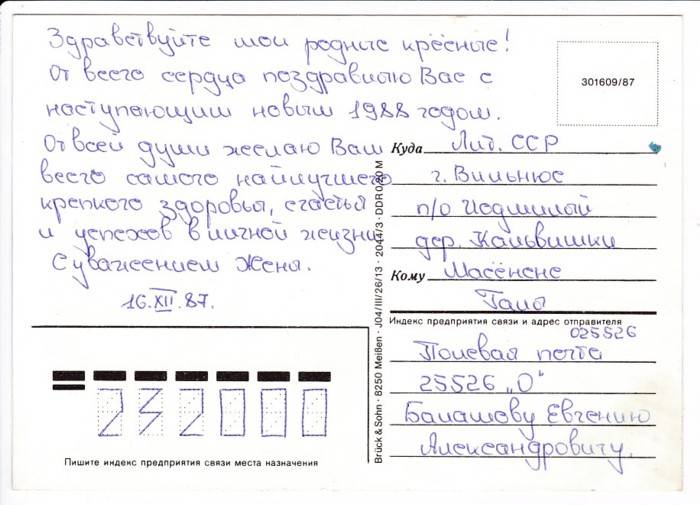 Здравствуйте мои родные крёсные!
От всего сердца поздравляю Вас с
наступающим новым 1988 годом.
От всей души желаю Вам
всего самого найлучшего
крепкого здоровья, счастья
и успехов в личной жизни
С уважением Женя.
16.XII.87.
301609/87
Куда Лит. ССР
г. Вильнюс
п/о
дер. Кальвишки
Кому
Гале
Индекс предприятия связи и адрес отправителя
025526
Полевая почта
25526 „О"
Балашову Евгению
Александровичу.
232000
Пишите индекс предприятия связи места назначения
Brück & Sohn · 8250 Meißen · J04/III/26/13 · 2044/3 · DDR 0,20 M